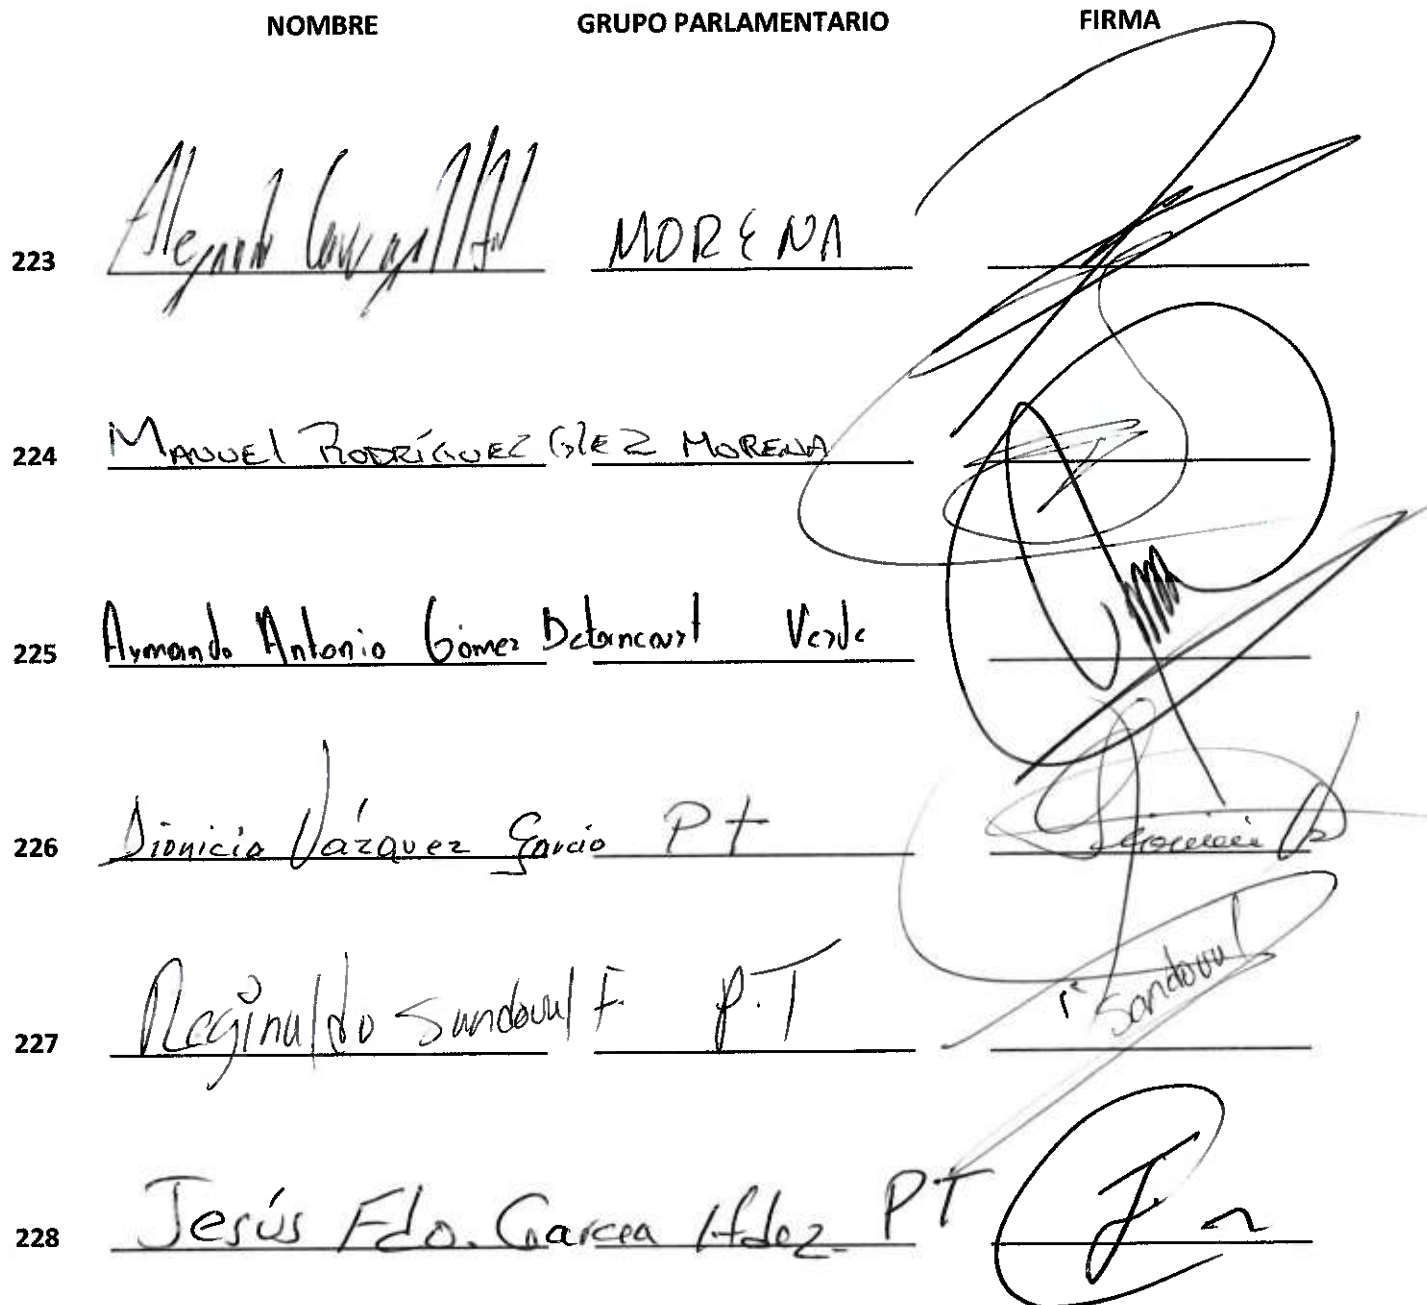 NOMBRE GRUPO PARLAMENTARIO FIRMA
223 Alejandro MORENA
224 MANUEL RODRÍGUEZ GLEZ MORENA
225 Armando Antonio Gómez Betancourt Verde
226 Dionicio Vázquez García Pt
227 Reginaldo Sandoval F. P.T r Sandoval
228 Jesús Fdo. García Hdez. PT